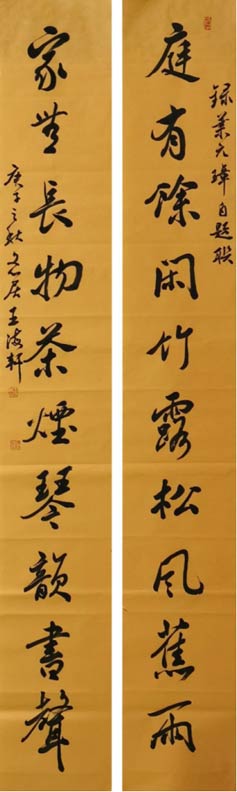 庭有餘閑竹露松風蕉雨
錄葉元璋自題聯
家無長物茶煙琴韻書聲
庚子之秋居王海軒